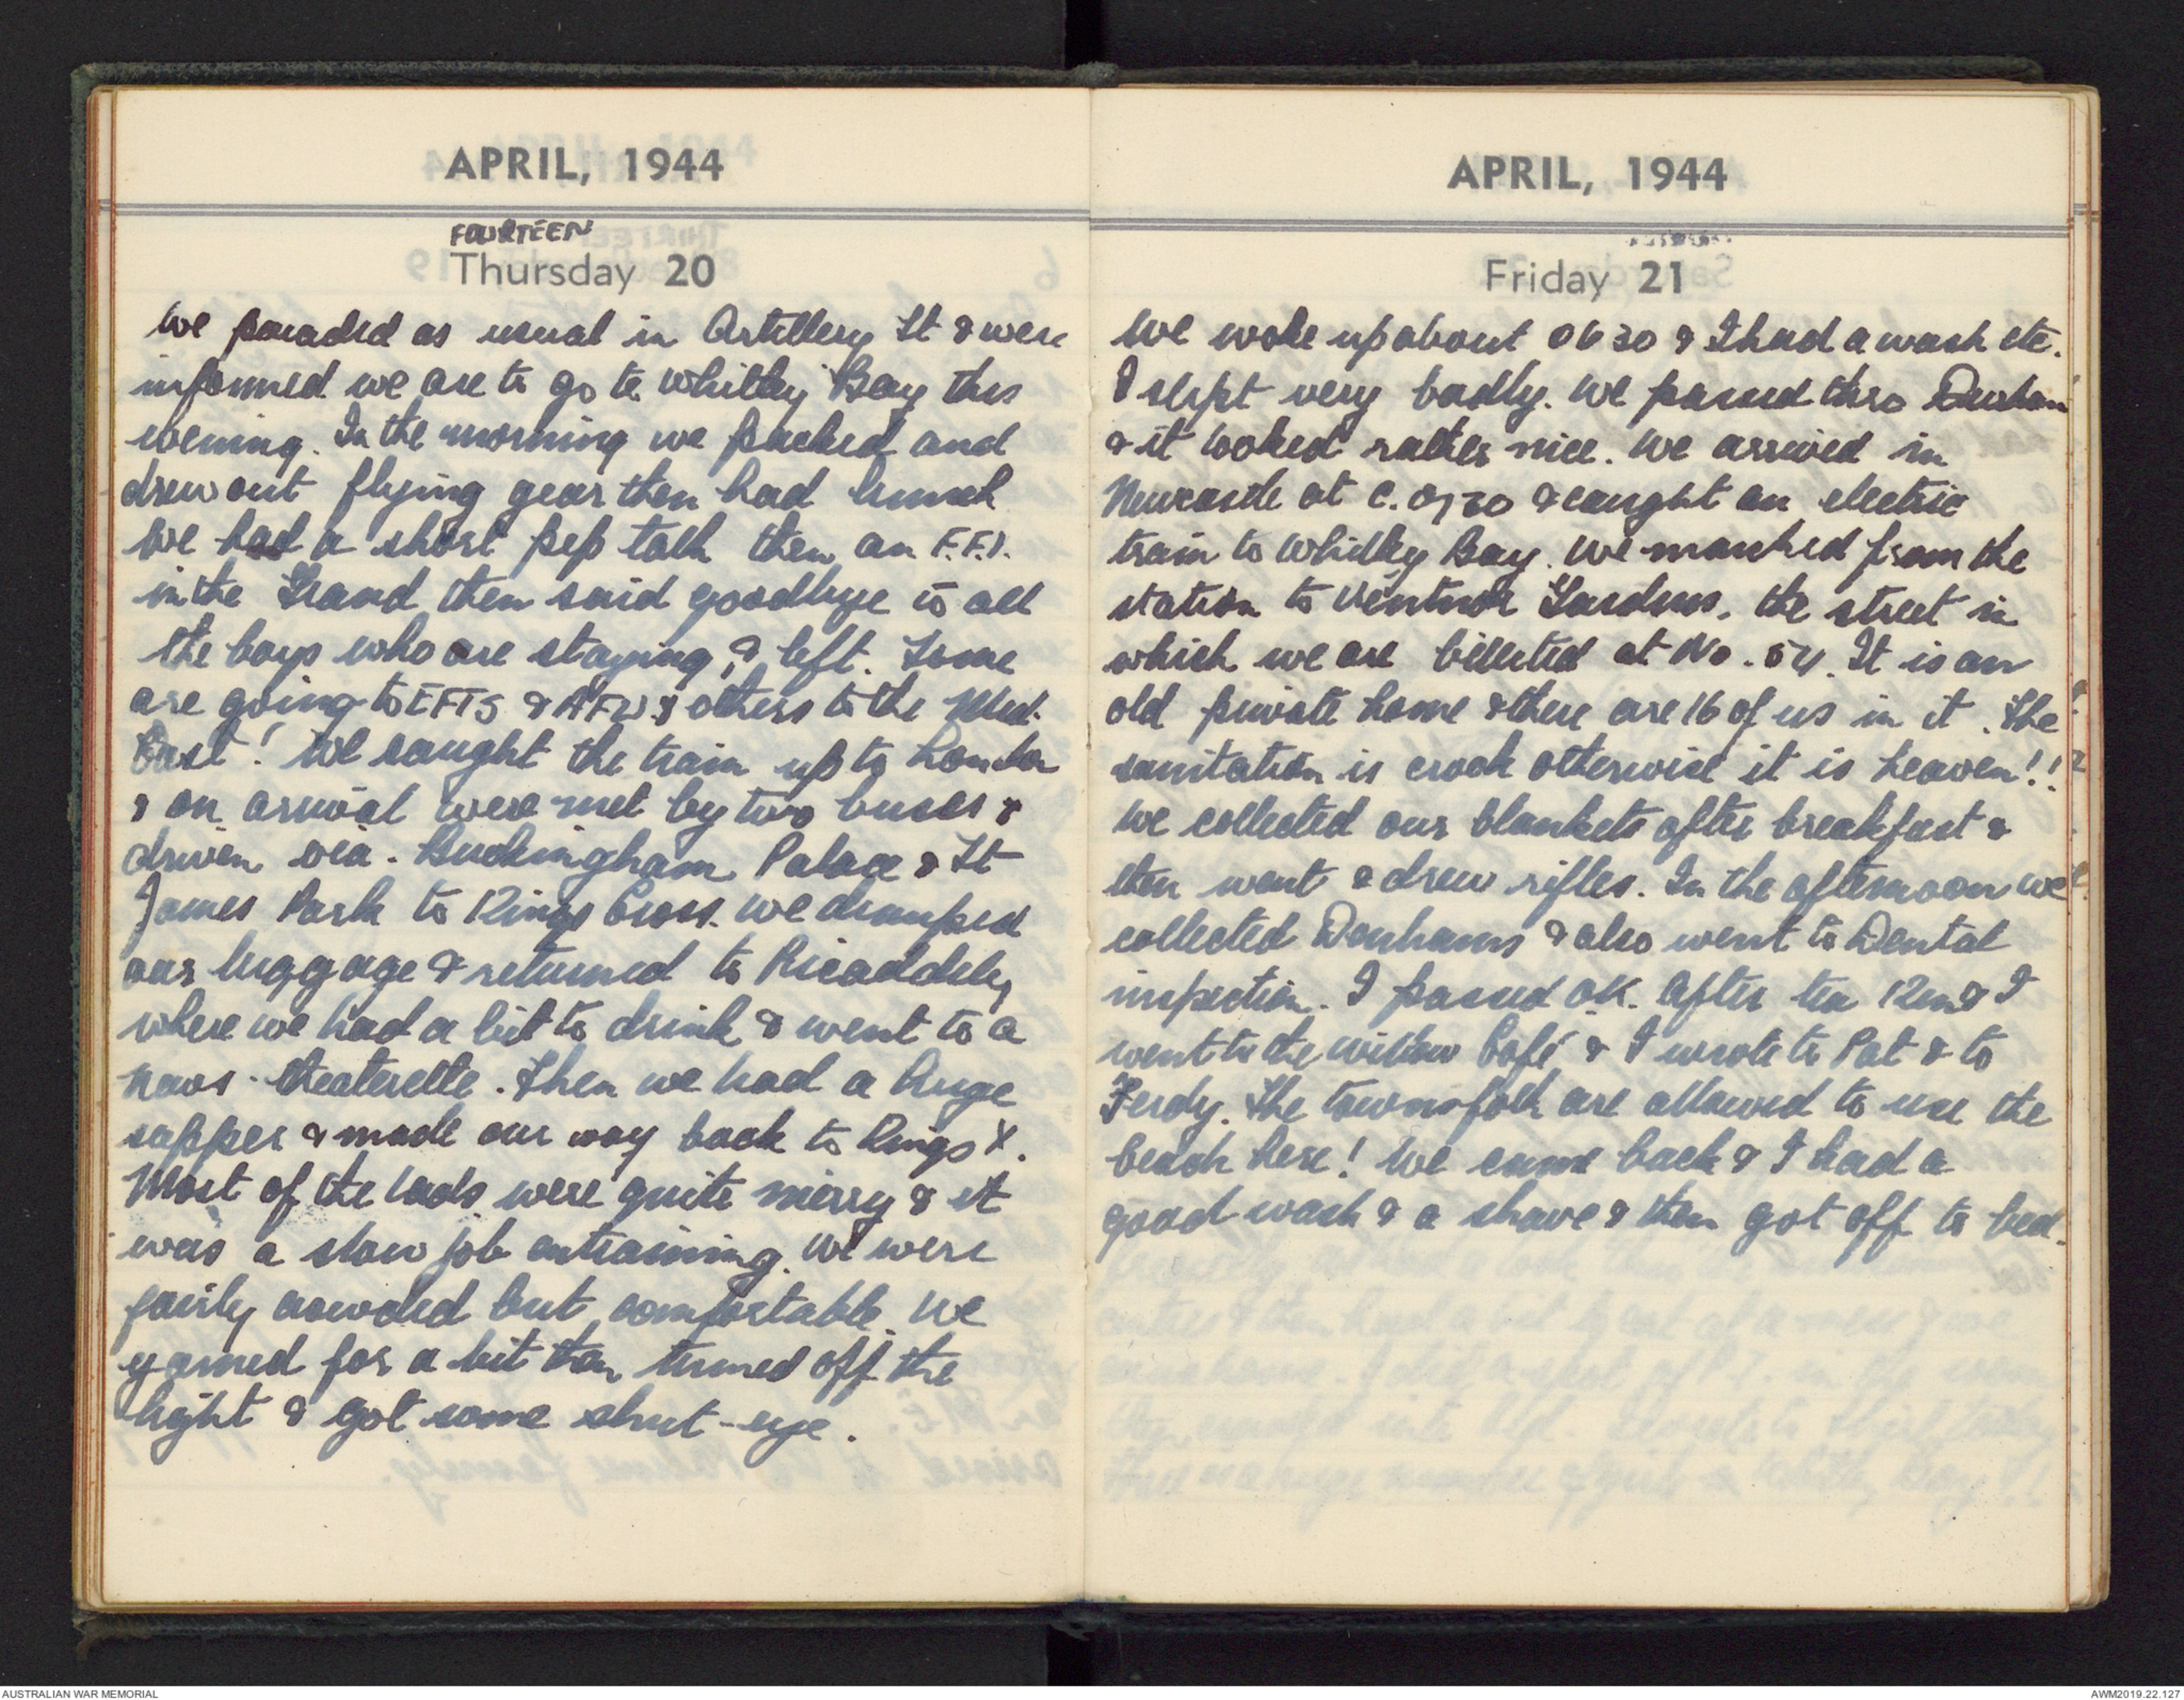 APRIL, 1944
FOURTEEN
Thursday 20
We paraded as usual in Artillery St & were
informed we are to go to Whitley Bay this
evening. In the morning we packed and
drew out flying gear then had lunch
We had a short pep talk then an F.F.I.
in the Grand then said goodbye to all
the boys who are staying, & left. Some
are going to EFTS & AFU & others to the Mid.
East! We caught the train up to London
& on arrival were met by two buses &
driven via. Buckingham Palace & St
James Park to Kings Cross. We dumped
our luggage & returned to Picaddely
where we had a bit to drink & went to a
news-theaterette. Then we had a huge
supper & made our way back to Kings X.
Most of the lads were quite merry & it
was a slow job entraining. We were
fairly crowded but comfortable. We
yarned for a bit then turned off the
light & got some shut-eye.
APRIL, 1944
Friday 21
We woke up about 0630 & I had a wash etc.
I slept very badly. We passed thro Durham
& it looked rather nice. We arrived in
Newcastle at c. 0730 & caught an electric
train to Whitley Bay. We marched from the
station to Ventnor Gardens, the street in
which we are billeted at No. 54. It is an
old private home & there are 16 of us in it. The
sanitation is crook otherwise it is heaven!!
We collected our blankets after breakfast &
then went & drew rifles. In the afternoon we
collected Denhams & also went to Dental
inspection. I passed OK. After tea Ken & I
went to the Willow Café & I wrote to Pat & to
Ferdy. The townsfolk are allowed to use the
beach here! We came back & I had a
good wash & a shave & then got off to bed.
AUSTRALIAN WAR MEMORIAL
AWM2019.22.127